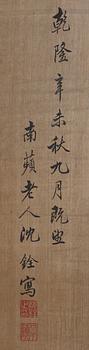 乾隆辛未秋九月既望
南蘋老人沈銓寫